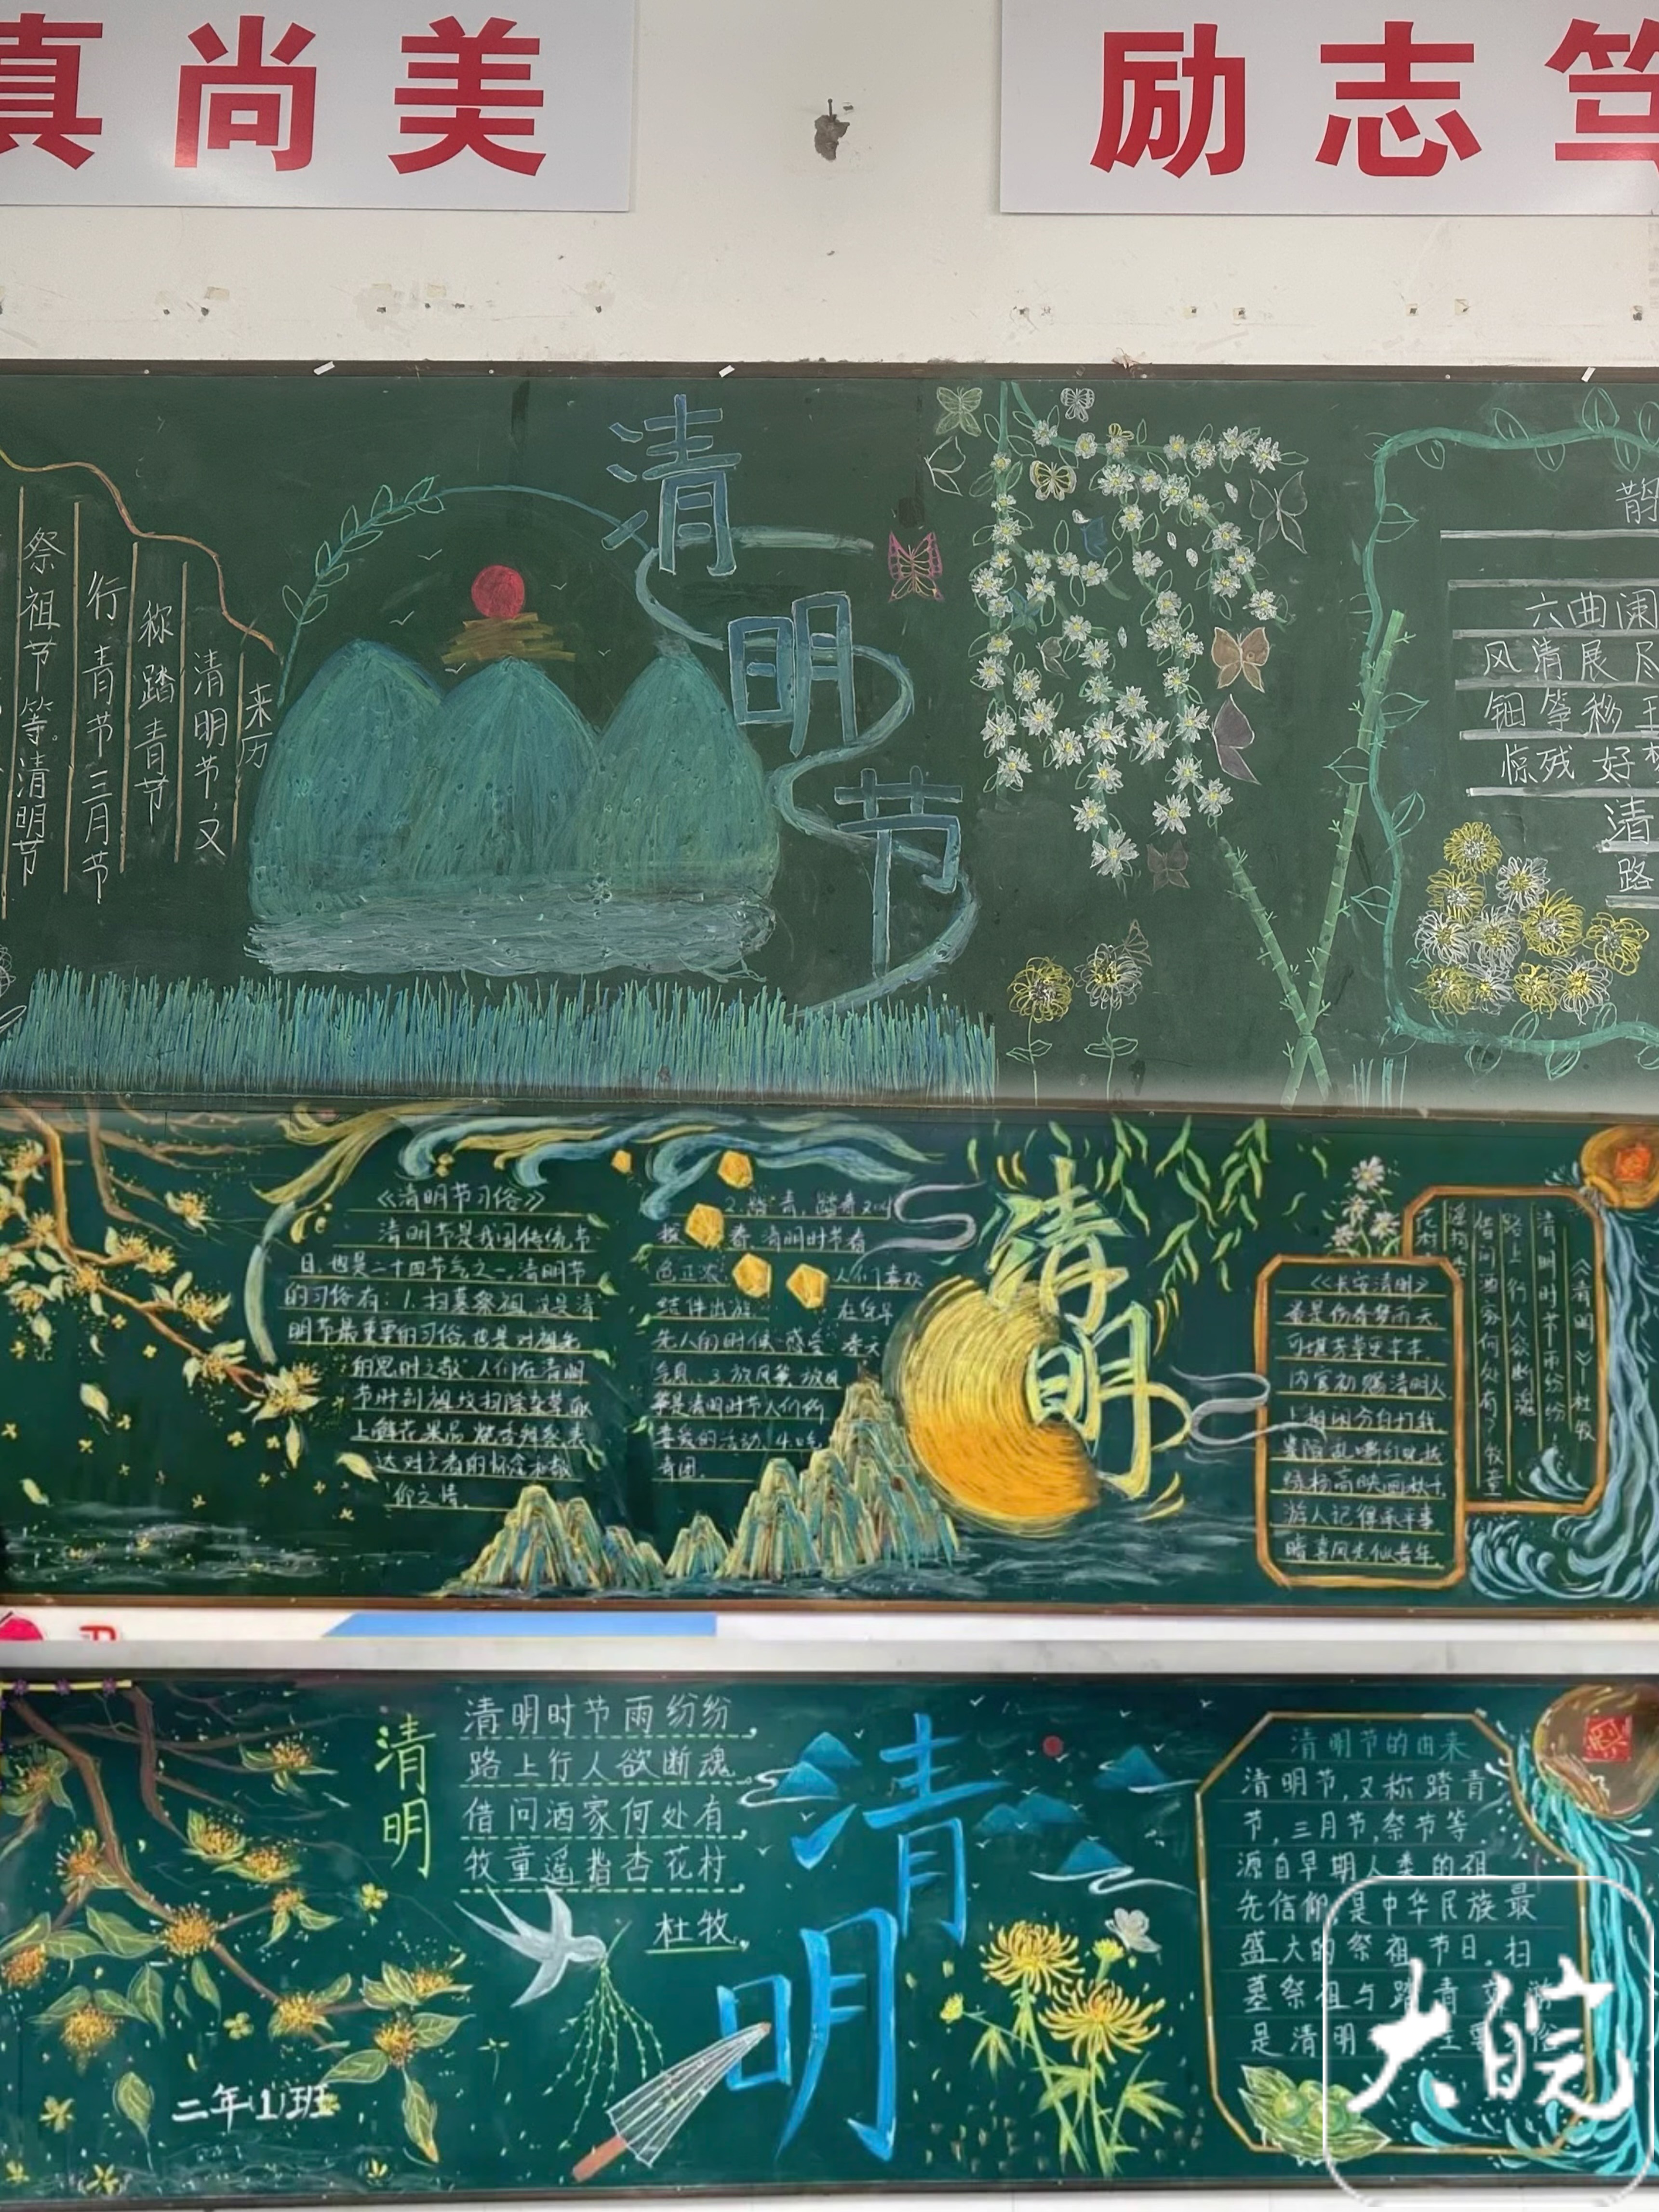 真尚美
励志笃
清明节
来历
清明节，又
称踏青节
行青节三月节
祭祖节等。清明节
六曲阑
风清展尽
钿筝移玉
惊残好梦
清
路
《清明节习俗》
清明节是我国传统节
日，也是二十四节气之一。清明节
的习俗有：1.扫墓祭祖，这是清
明节最重要的习俗，也是对祖先
人们在清明
节时到祖坟扫除杂草
上鲜花果品
达对亡者的怀念和敬
仰之情。
2.踏青，踏青又叫
春 清明时节春
人们喜欢
结伴出游
先人的时候 感受 春天
3.放风筝，放风
筝是清明时节人们所
喜爱的活动
青团。
清明
《清明》杜牧
清明时节雨纷纷
路上行人欲断魂
借问酒家何处有？牧童
遥指杏
花村
《长安清明》
内官初赐清明火
上相闲分白打钱
绿杨高映画秋千
游人记得承平事
暗喜风光似昔年
清明
清明时节雨纷纷
路上行人欲断魂
借问酒家何处有
牧童遥指杏花村
杜牧
清明
二年(1)班
清明节的由来
清明节，又称踏青
节，三月节，祭节等，
源自早期人类的祖
先信仰，是中华民族最
盛大的祭祖节日。扫
墓祭祖与踏青郊游
是清明
大皖